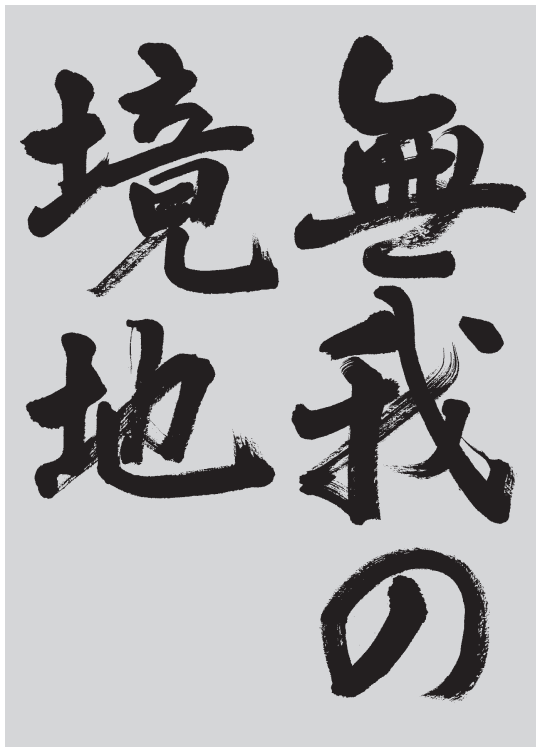 無我の
境地